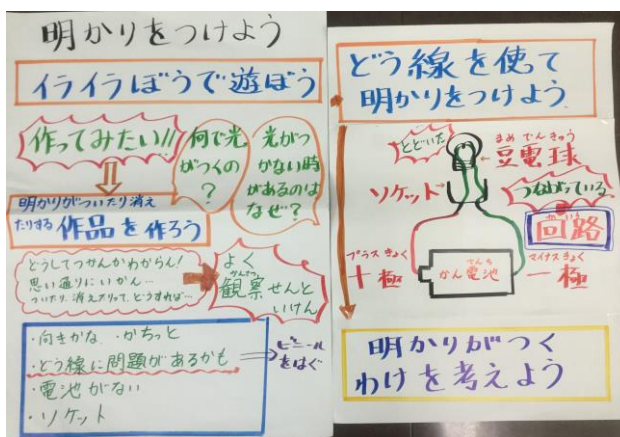 明かりをつけよう
イライラぼうで遊ぼう
作ってみたい!!
何で光
がつくの
?
光がつ
かない時
があるのは
なぜ?
明かりがついたり消え
たりする作品を作ろう
どうしてつかんかわからん!
思い通りにいかん…
ついたり、消えたりって、どうすれば…
よく
かんさつ
観察せんと
いけん
・向きかな ・かちっと
・どう線に問題があるかも
・電池がない
・ソケット
ビニール
をはぐ
どう線を使って
明かりをつけよう
とどいた
まめでんきゅう
豆電球
ソケット
つながっている
かいろ
回路
プラスきょく
+極
でんち
かん電池
マイナスきょく
一極
明かりがつく
わけを考えよう